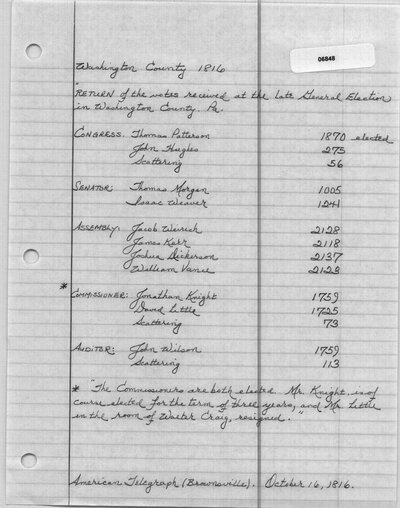 06848
Washington County 1816
"RETURN of the votes received at the late General Election
in Washington County. Pa.
CONGRESS. Thomas Patterson 1870 elected
John Hughes 275
Scattering 56
SENATOR: Thomas Morgan 1005
Isaac Weaver 1241
ASSEMBLY: Jacob Weirich 2128
James Kerr 2118
Joshua Dickerson 2137
William Vance 2123
*
COMMISSIONER: Jonathan Knight 1759
David Little 1725
Scattering 73
AUDITOR: John Wilson 1759
Scattering 113
* "The Commissioners are both elected. Mr. Knight, is of
course elected for the term of three years, and Mr. Little
in the room of Walter Craig, resigned."
American Telegraph (Brownsville). October 16, 1816.